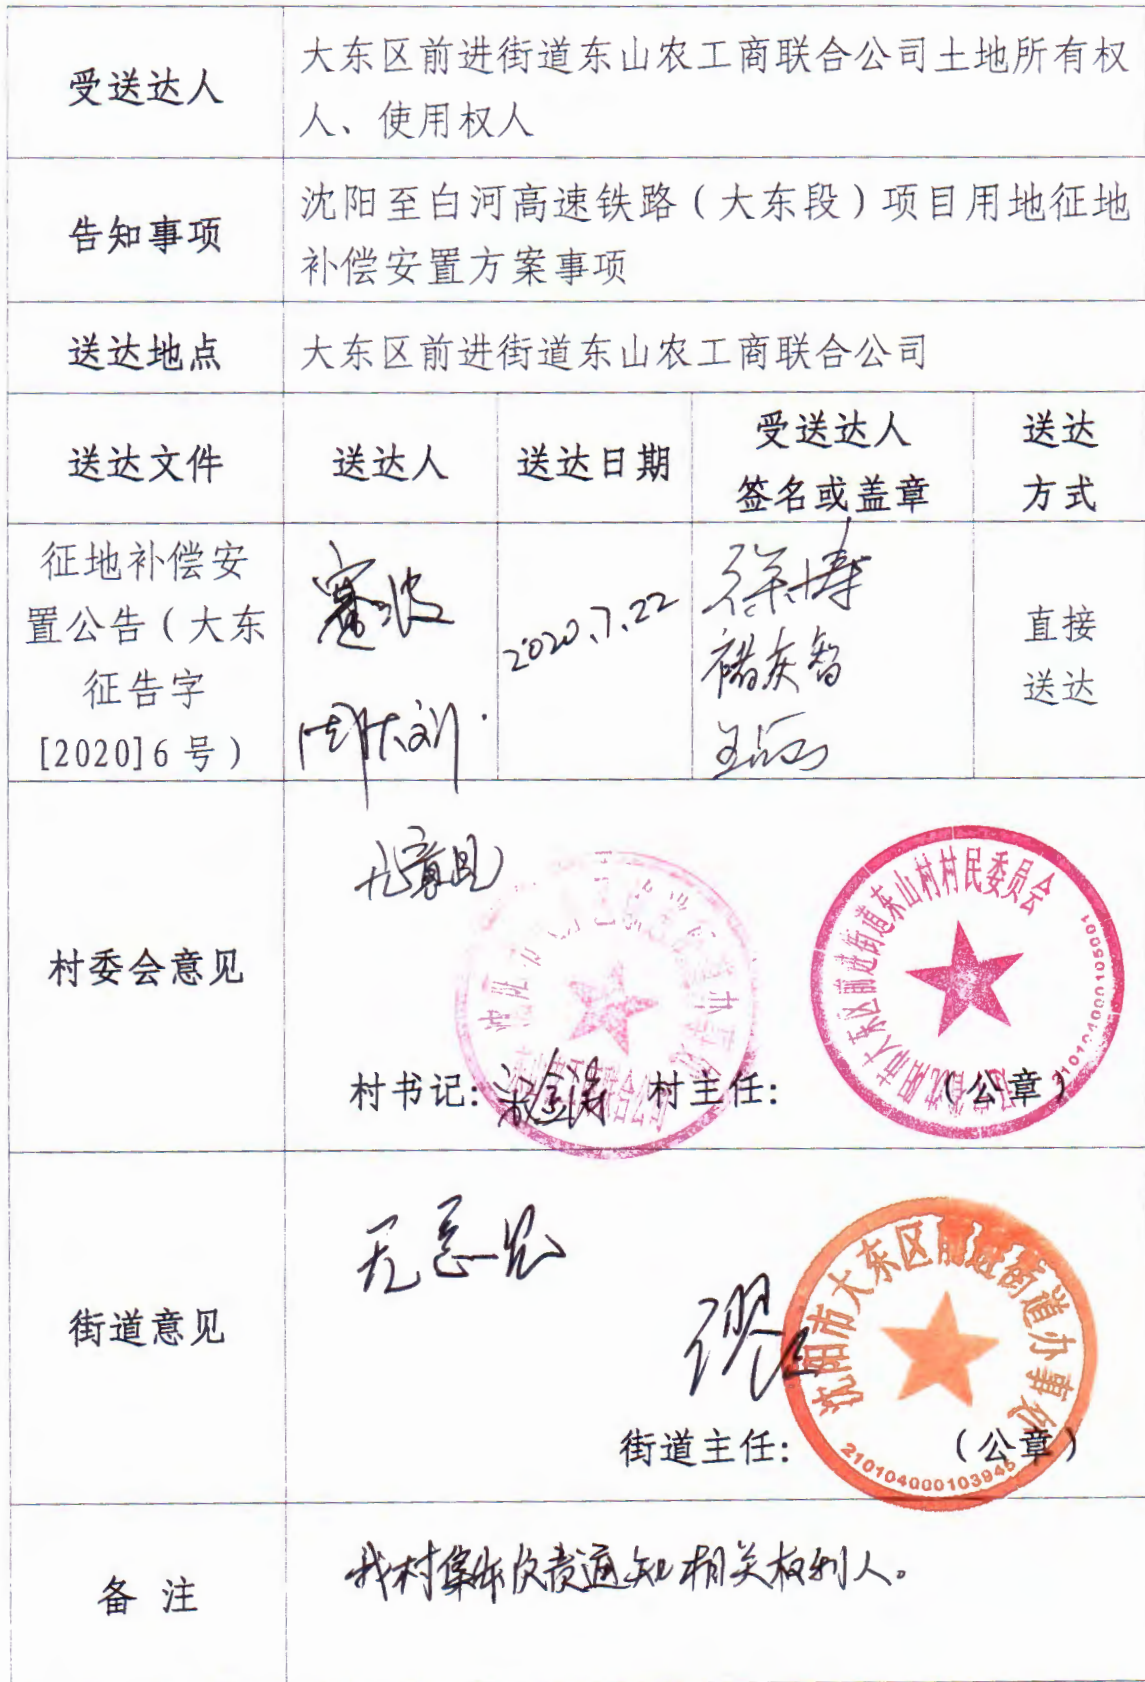 受送达人
大东区前进街道东山农工商联合公司土地所有权
人、使用权人
告知事项
沈阳至白河高速铁路（大东段）项目用地征地
补偿安置方案事项
送达地点
大东区前进街道东山农工商联合公司
送达文件
送达人
送达日期
受送达人
签名或盖章
送达
方式
征地补偿安
置公告（大东
征告字
[2020]6号）
2020.7.22
直接
送达
村委会意见
无意见
沈阳市大东区前进街道东山村村民委员会
210104000105001
村书记：
村主任：
（公章）
街道意见
无意见
沈阳市大东区前进街道办事处
2101040000103945
街道主任：
（公章）
备 注
我村集体负责通知相关权利人。